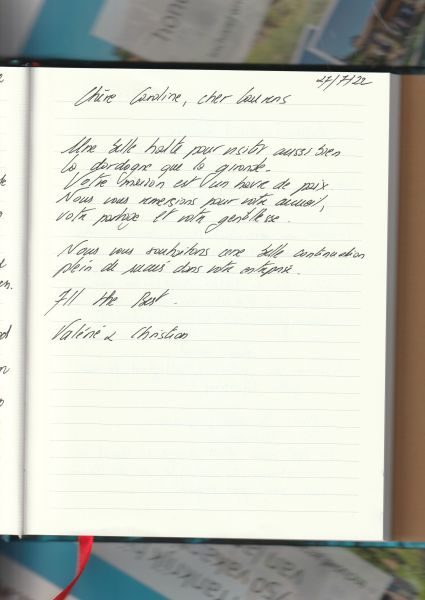 27/7/22
Chère Caroline, cher Laurens
Une belle halte pour visiter aussi bien
la dordogne que la gironde.
Votre maison est un havre de paix
Nous vous remercions pour votre accueil,
votre partage et votre gentillesse.
Nous vous souhaitons une belle continuation
plein de succès dans votre entreprise.
All the Best.
Valérie & Christian